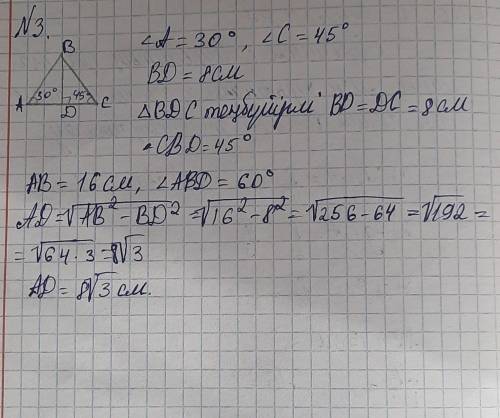 N3.
∠A = 30°, ∠C = 45°
B
BD = 8см
30° 45°
A D C
△BDC теңбүйірлі BD = DC = 8см
∠CBD = 45°
AB = 16см, ∠ABD = 60°
AD = √AB² - BD² = √16² - 8² = √256 - 64 = √192 =
= √64 · 3 = 8√3
AD = 8√3 см.